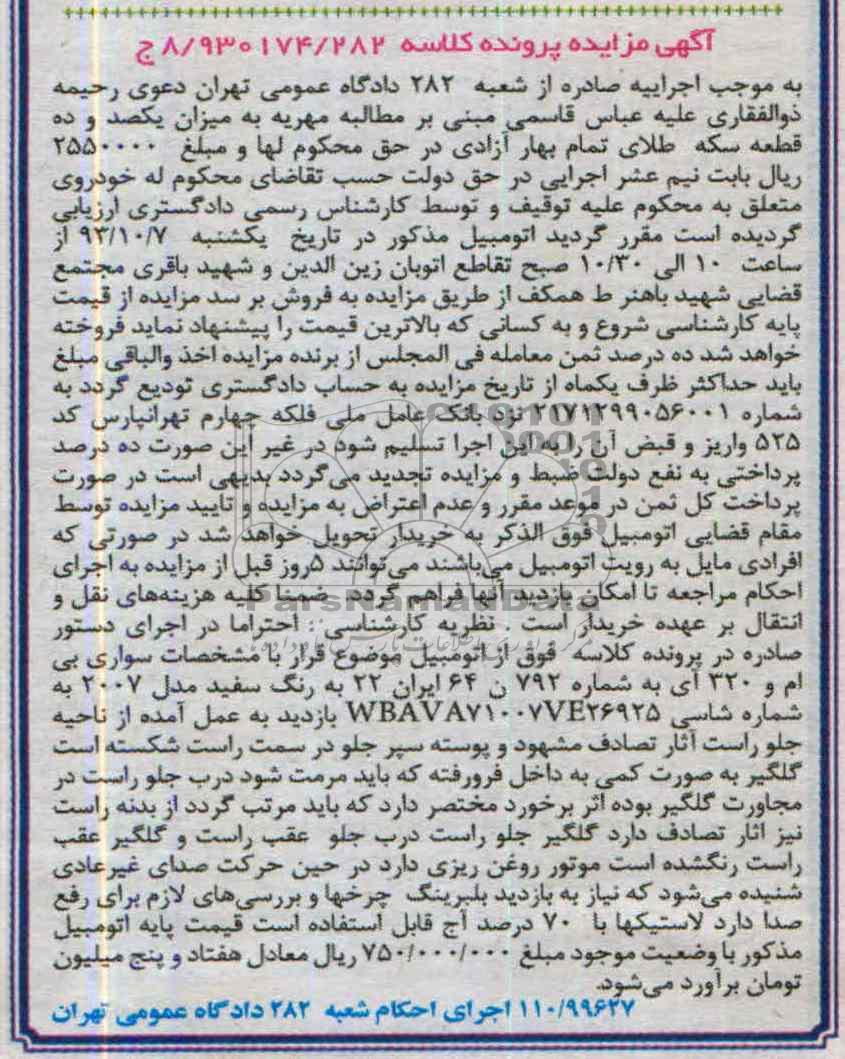 آگهی مزایده پرونده کلاسه ۸/۹۳۰۱۷۴/۲۸۲ ج
به موجب اجراییه صادره از شعبه ۲۸۲ دادگاه عمومی تهران دعوی رحیمه
ذوالفقاری علیه عباس قاسمی مبنی بر مطالبه مهریه به میزان یکصد و ده
قطعه سکه طلای تمام بهار آزادی در حق محکوم لها و مبلغ ۲۵۵۰۰۰۰
ریال بابت نیم عشر اجرایی در حق دولت حسب تقاضای محکوم له خودروی
متعلق به محکوم علیه توقیف و توسط کارشناس رسمی دادگستری ارزیابی
گردیده است مقرر گردید اتومبیل مذکور در تاریخ یکشنبه ۹۳/۱۰/۷ از
ساعت ۱۰ الی ۱۰/۳۰ صبح تقاطع اتوبان زین الدین و شهید باقری مجتمع
قضایی شهید باهنر ط همکف از طریق مزایده به فروش بر سد مزایده از قیمت
پایه کارشناسی شروع و به کسانی که بالاترین قیمت را پیشنهاد نماید فروخته
خواهد شد ده درصد ثمن معامله فی المجلس از برنده مزایده اخذ والباقی مبلغ
باید حداکثر ظرف یکماه از تاریخ مزایده به حساب دادگستری تودیع گردد به
شماره ۲۱۷۱۲۹۹۰۵۶۰۰۱ نزد بانک عامل ملی فلکه چهارم تهرانپارس کد
۵۲۵ واریز و قبض آن را به این اجرا تسلیم شود در غیر این صورت ده درصد
پرداختی به نفع دولت ضبط و مزایده تجدید می‌گردد بدیهی است در صورت
پرداخت کل ثمن در موعد مقرر و عدم اعتراض به مزایده و تایید مزایده توسط
مقام قضایی اتومبیل فوق الذکر به خریدار تحویل خواهد شد در صورتی که
افرادی مایل به رویت اتومبیل می‌باشند می‌توانند ۵روز قبل از مزایده به اجرای
احکام مراجعه تا امکان بازدید آنها فراهم گردد ضمنا کلیه هزینه‌های نقل و
انتقال بر عهده خریدار است . نظریه کارشناسی : احتراما در اجرای دستور
صادره در پرونده کلاسه فوق از اتومبیل موضوع قرار با مشخصات سواری بی
ام و ۳۲۰ آی به شماره ۷۹۲ ن ۶۴ ایران ۲۲ به رنگ سفید مدل ۲۰۰۷ به
شماره شاسی WBAVA۷۱۰۰۷VE۲۶۹۲۵ بازدید به عمل آمده از ناحیه
جلو راست آثار تصادف مشهود و پوسته سپر جلو در سمت راست شکسته است
گلگیر به صورت کمی به داخل فرورفته که باید مرمت شود درب جلو راست در
مجاورت گلگیر بوده اثر برخورد مختصر دارد که باید مرتب گردد از بدنه راست
نیز اثار تصادف دارد گلگیر جلو راست درب جلو عقب راست و گلگیر عقب
راست رنگشده است موتور روغن ریزی دارد در حین حرکت صدای غیرعادی
شنیده می‌شود که نیاز به بازدید بلبرینگ چرخها و بررسی‌های لازم برای رفع
صدا دارد لاستیکها با ۷۰ درصد آج قابل استفاده است قیمت پایه اتومبیل
مذکور با وضعیت موجود مبلغ ۷۵۰/۰۰۰/۰۰۰ ریال معادل هفتاد و پنج میلیون
تومان برآورد می‌شود.
۱۱۰/۹۹۶۲۷ اجرای احکام شعبه ۲۸۲ دادگاه عمومی تهران
ParsNamadData